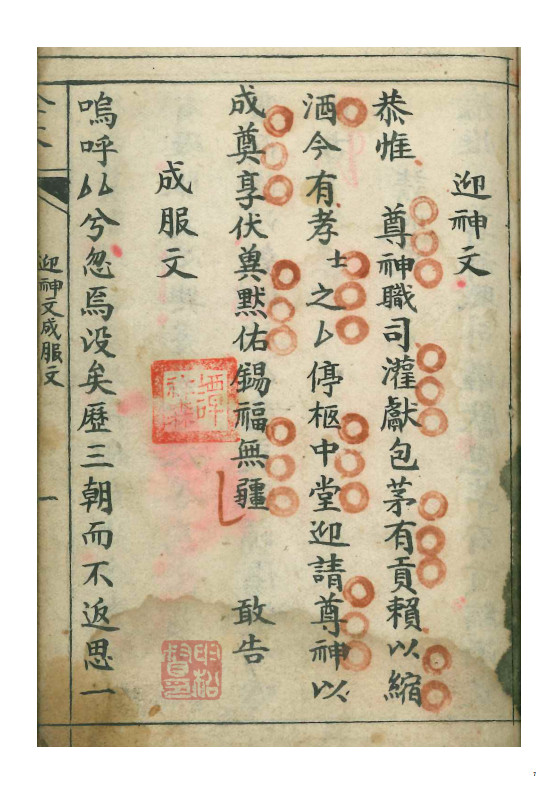 迎神文
恭惟 尊神職司灌獻包茅有貢賴以縮
洒今有孝士之厶停柩中堂迎請尊神以
成奠享伏兾默佑錫福無疆 敢告
成服文
嗚呼厶厶兮忽焉没矣歷三朝而不返思一
迎神文成服文 一
7